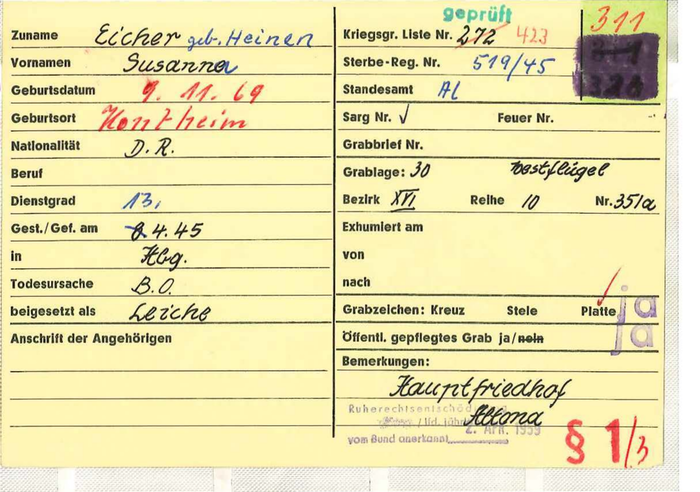 geprüft
311
Zuname Eicher geb. Heinen
Vornamen Susanna
Geburtsdatum 9. 11. 69
Geburtsort Hontheim
Nationalität D.R.
Beruf
Dienstgrad 13.
Gest./Gef. am 8.4.45
in Hbg.
Todesursache B.O.
beigesetzt als Leiche
Anschrift der Angehörigen
Kriegsgr. Liste Nr. 272 423
Sterbe-Reg. Nr. 519/45
Standesamt Al
Sarg Nr. √ Feuer Nr.
Grabbrief Nr.
Grablage: 30 Westflügel
Bezirk XVI Reihe 10 Nr. 351a
Exhumiert am
von
nach
Grabzeichen: Kreuz Stele Platte ja
Öffentl. gepflegtes Grab ja/nein ja
Bemerkungen:
Hauptfriedhof
Altona
Ruherechtsentschäd
/ lfd. jähr
2. APR. 1959
vom Bund anerkannt
§ 1/3